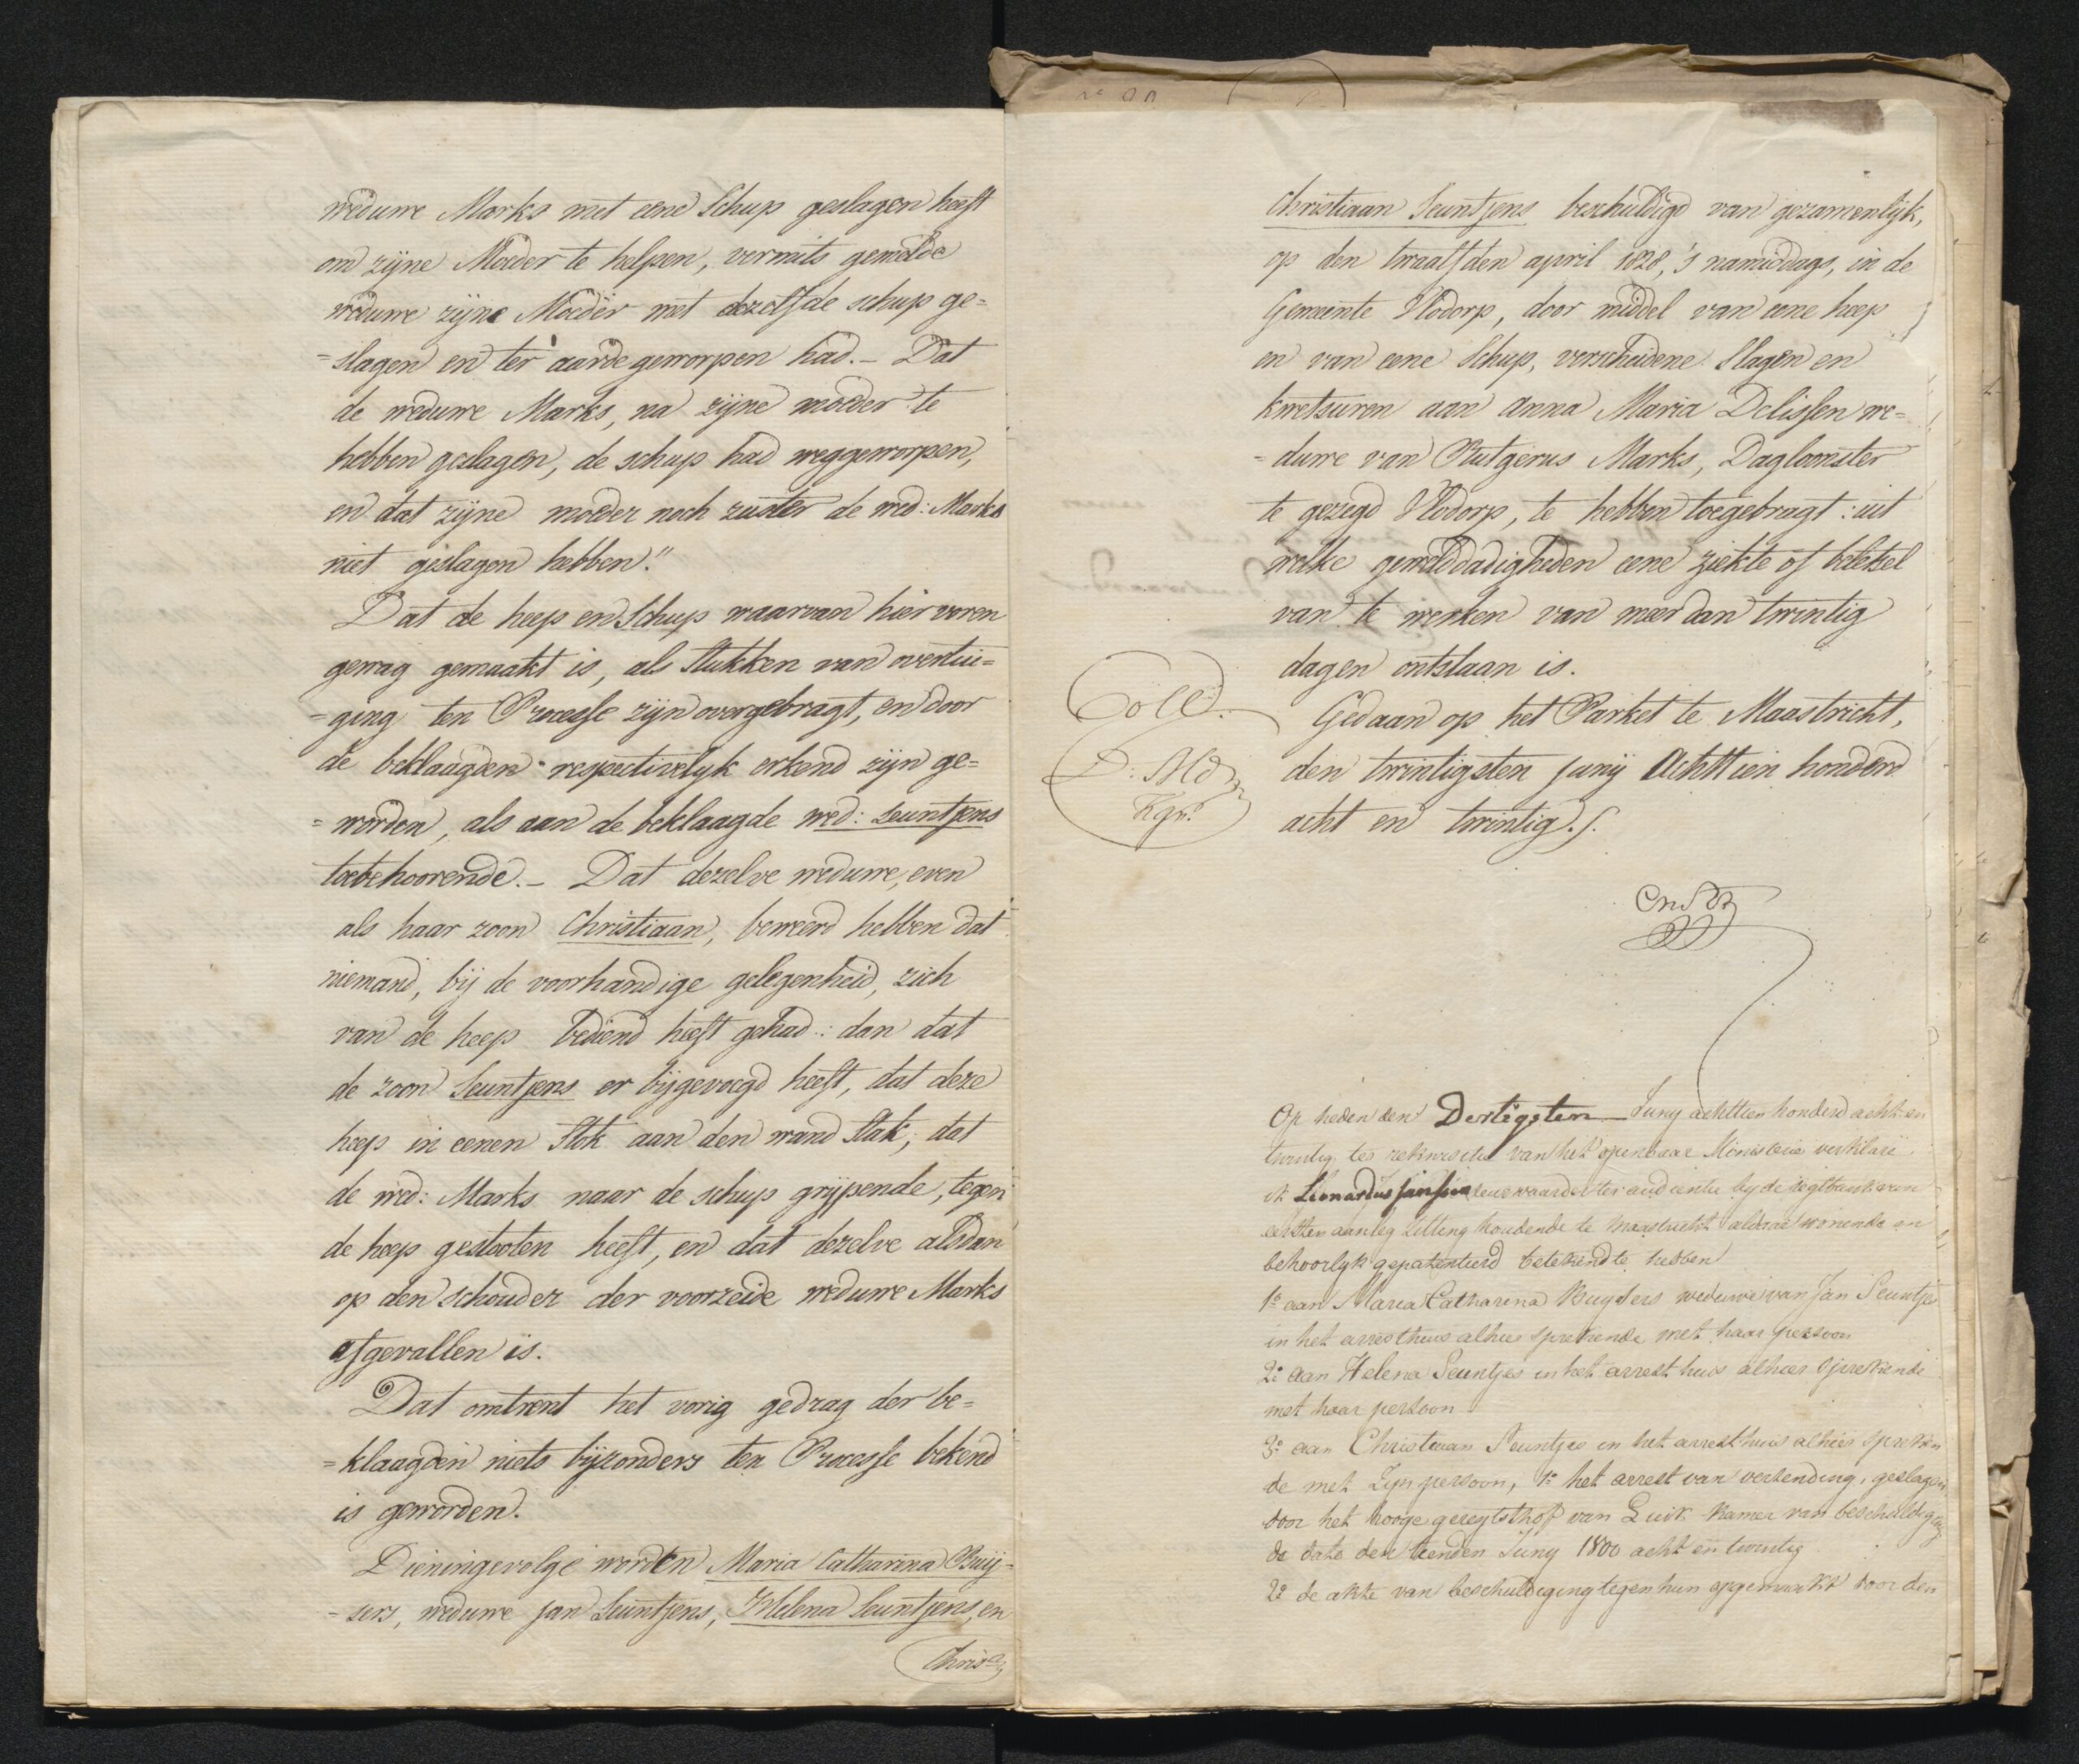 weduwe Marks met eene Schup geslagen heeft
om zijne Moeder te helpen, vermits gemelde
weduwe zijne Moeder met dezelfde schup ge=
=slagen en ter aarde geworpen had. _ Dat
de weduwe Marks, na zijne moeder te
hebben geslagen, de schup had weggeworpen,
en dat zijne moeder noch zuster de wed: Marks
niet geslagen hebben."
Dat de heep en Schup waarvan hier voren
gewag gemaakt is, als Stukken van overtui=
=ging ten Processe zijn overgebragt, en door
de beklaagden respectivelyk erkend zijn ge=
=worden, als aan de beklaagde wed: Seuntjens
toebehoorende. _ Dat dezelve weduwe, even
als haar zoon Christiaan, beweerd hebben dat
niemand, bij de voorhandige gelegenheid, zich
van de heep bediend heeft gehad: dan dat
de zoon Seuntjens er bijgevoegd heeft, dat deze
heep in eenen Stok aan den wand Stak, dat
de wed: Marks naar de schup grijpende, tegen
de heep gestooten heeft, en dat dezelve alsdan
op den schouder der voorzeide weduwe Marks
afgevallen is.
Dat omtrent het vorig gedrag der be=
=klaagden niets bijzonders ten Processe bekend
is geworden.
Dieningevolge worden Maria Catharina Buij=
=sers, weduwe Jan Seuntjens, Helena Seuntjens, en
Chris
Christiaan Seuntjens beschuldigd van gezamenlijk,
op den twaalfden april 1828, 's namiddags, in de
Gemeente Vlodorp, door middel van eene heep
en van eene Schup, verscheidene Slagen en
kwetsuren aan Anna Maria Delissen we=
=duwe van Rutgerus Marks, Dagloonster
te gezegd Vlodorp, te hebben toegebragt: uit
welke gewelddadigheden eene ziekte of beletsel
van te werken van meer dan twintig
dagen ontstaan is.
Gedaan op het Parket te Maastricht,
den twintigsten junij Achttien honderd
acht en twintig./.
Coll
Op heden den Dertigsten Juny achttien honderd acht en
twintig ter rekwisitie van het openbaar Ministerie verklare
ik Leonardus Janssen deurwaarder ter audientie by de regtbank van
eersten aanleg zitting houdende te Maastricht aldaar wonende en
behoorlyk gepatenteerd betekend te hebben
1° aan Maria Catharina Buysers weduwe van Jan Seuntjes
in het arresthuis alhier sprekende met haar persoon
2° aan Helena Seuntjes in het arrest huis alhier sprekende
met haar persoon
3° aan Christiaan Seuntjes in het arresthuis alhier spreken
de met zyn persoon, 1° het arrest van verzending, geslagen
door het hooge geregtshof van Luik kamer van beschuldiging
de dato den tienden Juny 1800 acht en twintig
2° de akte van beschuldiging tegen hun opgemaakt door den